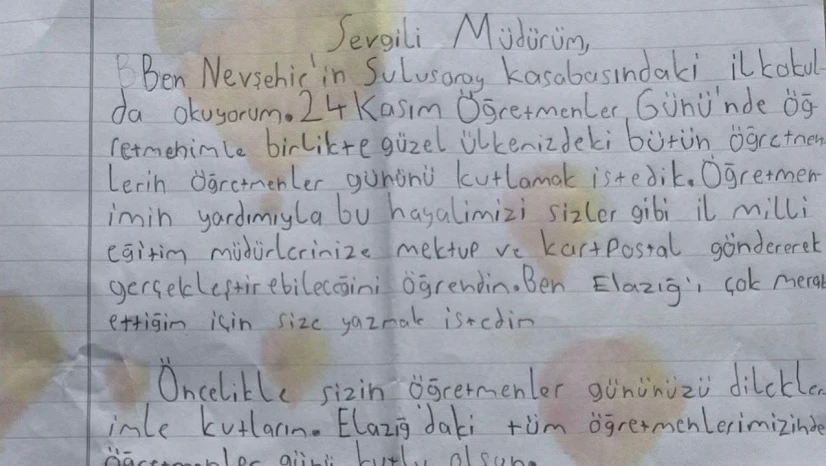 Sevgili Müdürüm,
Ben Nevşehir'in Sulusaray kasabasındaki ilkokul-
da okuyorum. 24 Kasım Öğretmenler Günü'nde öğ
retmenimle birlikte güzel ülkemizdeki bütün öğretmen
lerin öğretmenler gününü kutlamak istedik. Öğretmen-
imin yardımıyla bu hayalimizi sizler gibi il milli
eğitim müdürlerinize mektup ve kartpostal göndererek
gerçekleştirebileceğini öğrendim. Ben Elazığ'ı çok merak
ettiğim için size yazmak istedim
Öncelikle sizin öğretmenler gününüzü dilekler
imle kutlarım. Elazığ'daki tüm öğretmenlerimizinde
öğretmenler günü kutlu olsun.